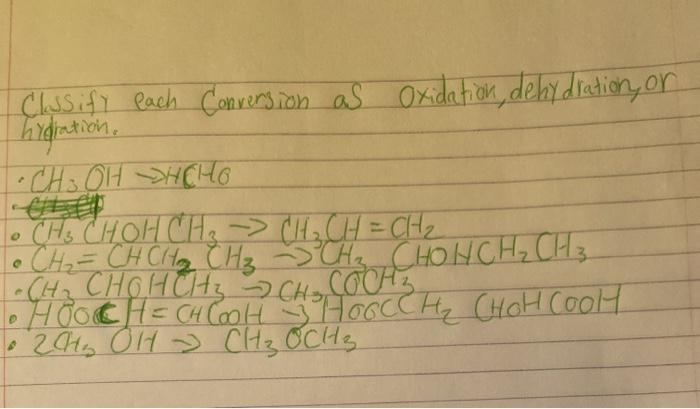 Classify each Conversion as Oxidation, dehydration, or
hydration.
• CH3 OH → HCHO
• CH3 CHOH CH3 → CH3CH = CH2
• CH2 = CHCH2 CH3 → CH3 CHOHCH2CH3
• CH3 CHOHCH3 → CH3 COCH3
• HOOCCH = CHCOOH → HOOCCH2 CHOHCOOH
• 2CH3 OH → CH3 OCH3